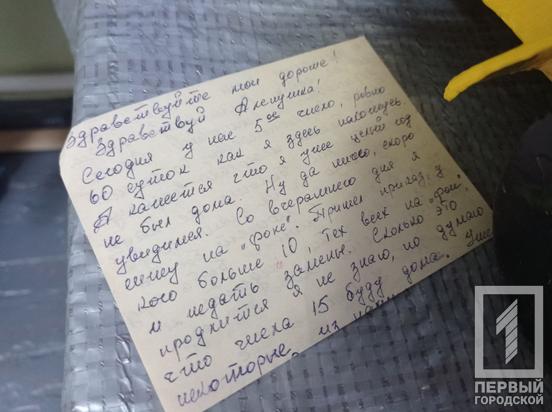 Здравствуйте мои дорогие!
Здравствуй Алешушка!
Сегодня у нас 5ое число, ровно
60 суток как я здесь нахожусь
А кажется что я уже целый год
не был дома. Ну да ничего, скоро
увидимся. Со вчерашнего дня я
сижу на "фоне". Пришел приказ, у
кого больше 10, тех всех на "фон"
и ждать замены. Сколько это
продлится я не знаю, но думаю
что числа 15 буду дома. Уже
некоторые из
1
ПЕРВЫЙ
ГОРОДСКОЙ